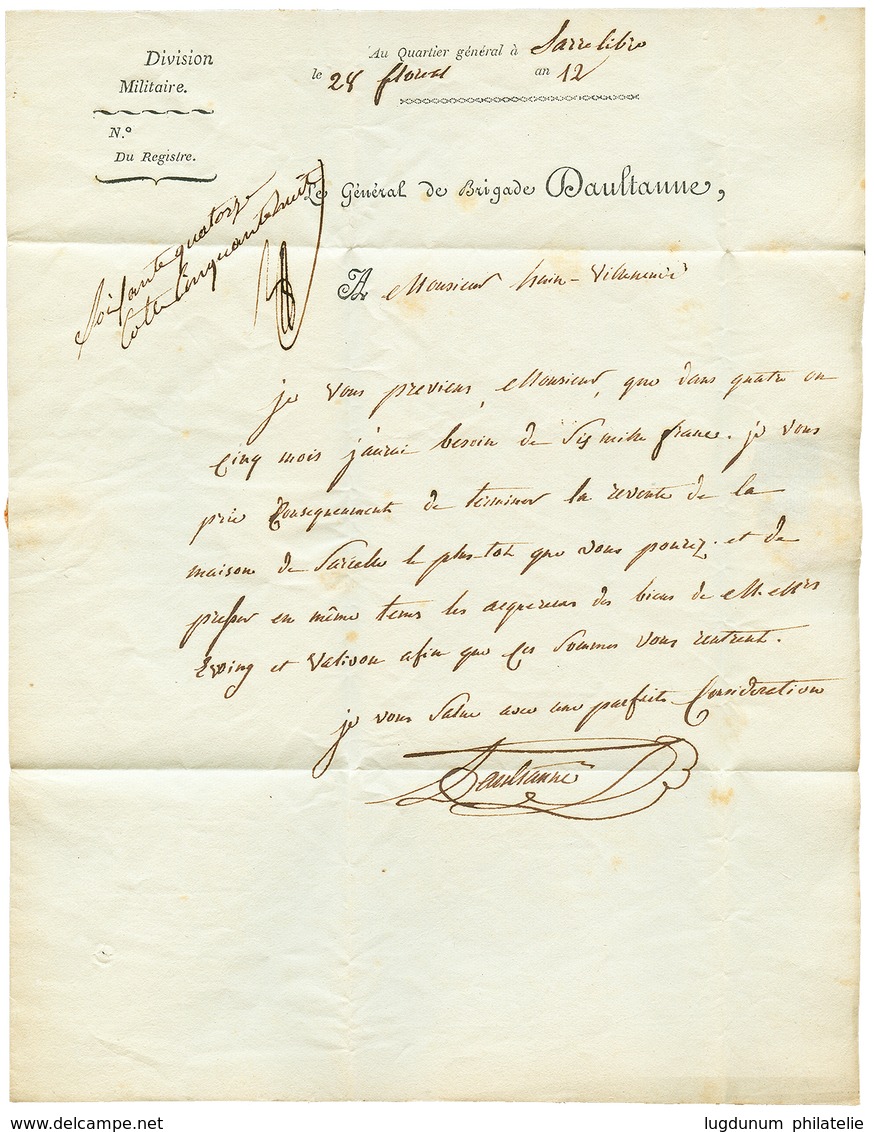 Division
Militaire.
N.º
Du Registre.
Au Quartier général à Sarrelibre
le 28 floreal an 12
Le Général de Brigade Daultanne,
Soixante quatorze
Cotte Cinquante huit
A Monsieur
je vous previens, Monsieur, que dans quatre ou
Cinq mois j'aurai besoin de Six mille francs. je vous
prie Consequemment de terminer la revente de la
maison de Sarcelle le plus tot que vous pourez. et de
presser en même tems les acquereurs des biens de M. Mrs
Ewing et Valivon afin que Ces Sommes vous rentrent.
je vous Salue avec une parfaite Consideration
Daultanne
www.delcampe.net
lugdunum philatelie